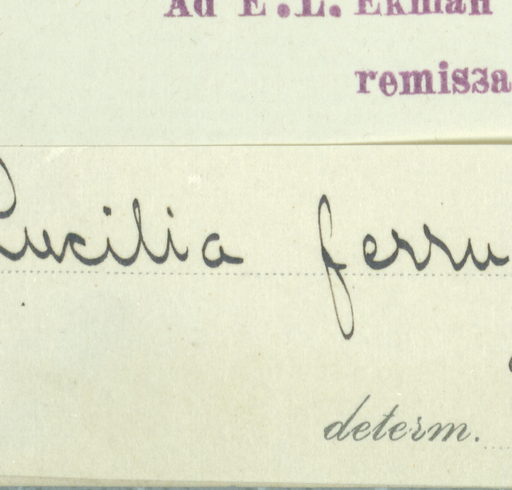 Ad E.L. Ekman
remissa
Lucilia ferru
determ.